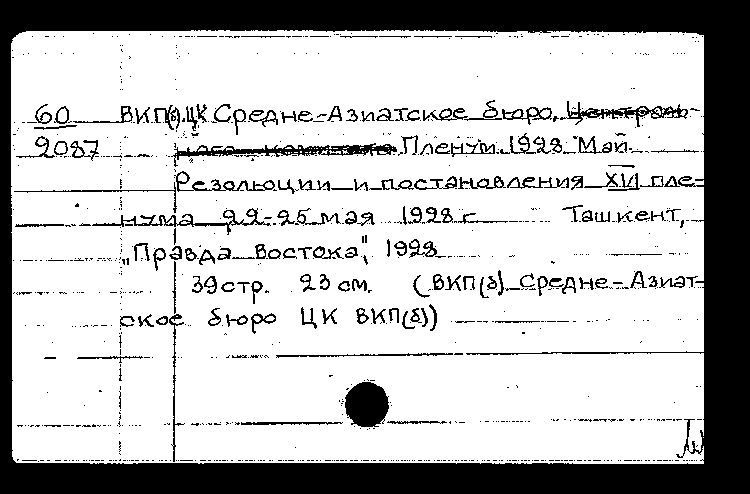 60 ВКП(б).ЦК Средне-Азиатское бюро.
2087 Пленум. 1928 Май.
Резолюции и постановления XVI пле-
нума 22-25 мая 1928 г. Ташкент,
„Правда Востока", 1928
39 стр. 23 см. (ВКП(б) Средне-Азиат-
ское бюро ЦК ВКП(б))